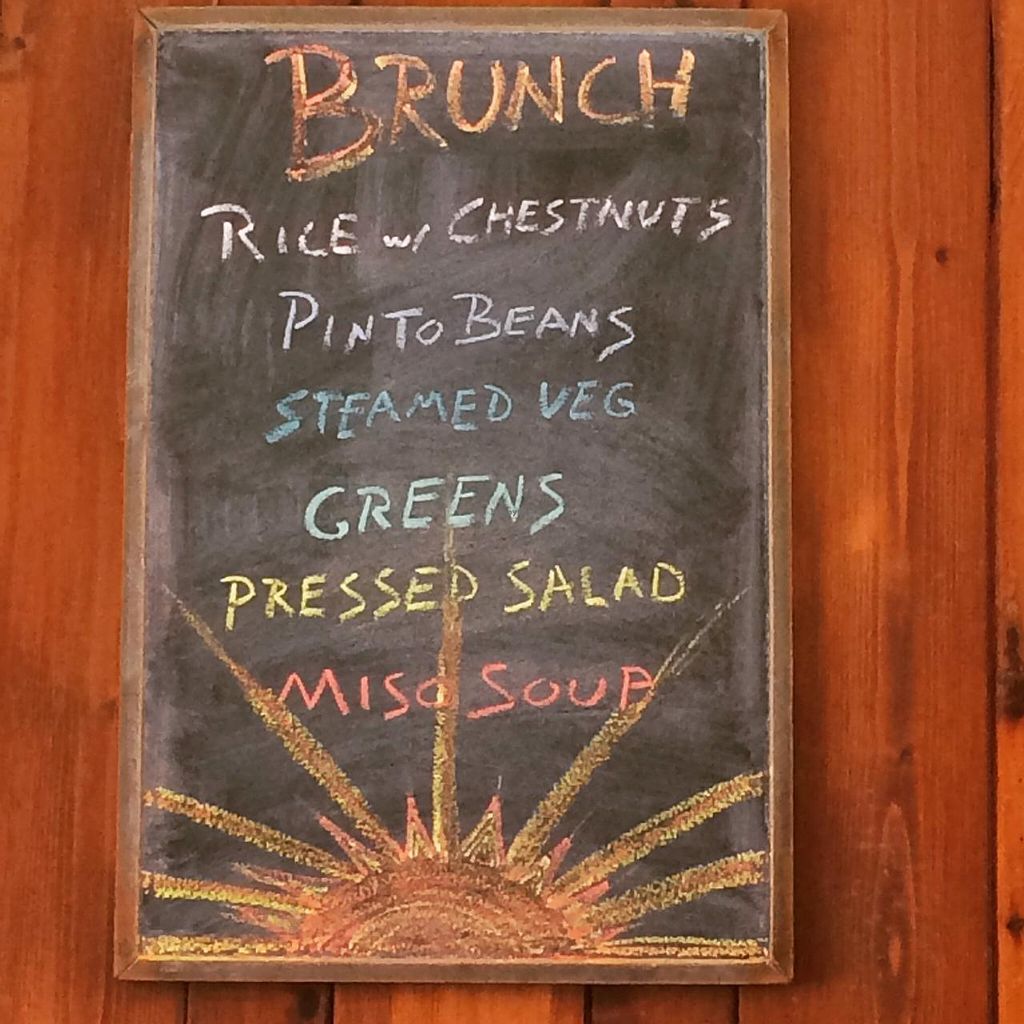 BRUNCH
RICE w/ CHESTNUTS
PINTO BEANS
STEAMED VEG
GREENS
PRESSED SALAD
MISO SOUP